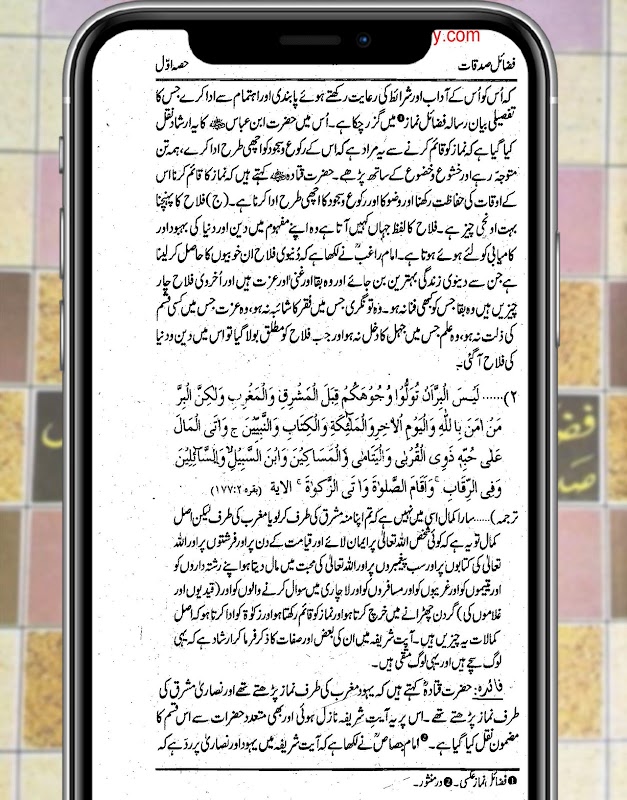 y.com
فضائل صدقات
حصہ اوّل
کہ اُس کو اُس کے آداب اور شرائط کی رعایت رکھتے ہوئے پابندی اور اہتمام سے ادا کرے جس کا
تفصیلی بیان رسالہ فضائل نماز❶ میں گزر چکا ہے۔ اُس میں حضرت ابن عباسؓ کا یہ ارشاد نقل
کیا گیا ہے کہ نماز کو قائم کرنے سے یہ مراد ہے کہ اس کے رکوع و سجود کو اچھی طرح ادا کرے، ہمہ تن
متوجہ رہے اور خشوع و خضوع کے ساتھ پڑھے۔ حضرت قتادہؓ کہتے ہیں کہ نماز کا قائم کرنا اس
کے اوقات کی حفاظت رکھنا اور وضو کا اور رکوع و سجود کا اچھی طرح ادا کرنا ہے۔ (ج) فلاح کا پہنچنا
بہت اونچی چیز ہے۔ فلاح کا لفظ جہاں کہیں آتا ہے وہ اپنے مفہوم میں دین اور دنیا کی بہبود اور
کامیابی کو لئے ہوئے ہوتا ہے۔ امام راغبؒ نے لکھا ہے کہ دُنیوی فلاح ان خوبیوں کا حاصل کر لینا
ہے جن سے دنیوی زندگی بہترین بن جائے اور وہ بقا اور غنٰی اور عزت ہیں اور اُخروی فلاح چار
چیزیں ہیں وہ بقا جس کو کبھی فنا نہ ہو۔ وہ تونگری جس میں فقر کا شائبہ نہ ہو، وہ عزت جس میں کسی قسم
کی ذلت نہ ہو، وہ علم جس میں جہل کا دخل نہ ہو اور جب فلاح کو مطلق بولا گیا تو اس میں دین و دنیا
کی فلاح آ گئی۔
۲)...... لَيْسَ الْبِرَّ اَنْ تُوَلُّوْا وُجُوْهَكُمْ قِبَلَ الْمَشْرِقِ وَالْمَغْرِبِ وَلٰكِنَّ الْبِرَّ
مَنْ اٰمَنَ بِاللّٰهِ وَالْيَوْمِ الْاٰخِرِ وَالْمَلٰٓئِكَةِ وَالْكِتَابِ وَالنَّبِيّٖنَ ج وَاٰتَى الْمَالَ
عَلٰى حُبِّهٖ ذَوِى الْقُرْبٰى وَالْيَتَامٰى وَالْمَسَاكِيْنَ وَابْنَ السَّبِيْلِ وَالسَّآئِلِيْنَ
وَفِى الرِّقَابِ ۚ وَاَقَامَ الصَّلٰوةَ وَاٰتَى الزَّكٰوةَ ۚ الاية (بقرہ ۲:۱۷۷)
ترجمہ)...... سارا کمال اسی میں نہیں ہے کہ تم اپنا منہ مشرق کی طرف کر لو یا مغرب کی طرف لیکن اصل
کمال تو یہ ہے کہ کوئی شخص اللہ تعالٰی پر ایمان لائے اور قیامت کے دن پر اور فرشتوں پر اور اللہ
تعالٰی کی کتابوں پر اور سب پیغمبروں پر اور اللہ تعالٰی کی محبت میں مال دیتا ہو اپنے رشتہ داروں کو
اور یتیموں کو اور غریبوں کو اور مسافروں کو اور لاچاری میں سوال کرنے والوں کو اور (قیدیوں اور
غلاموں کی) گردن چھڑانے میں خرچ کرتا ہو اور نماز کو قائم رکھتا ہو اور زکوٰۃ کو ادا کرتا ہو کہ اصل
کمالات یہ چیزیں ہیں۔ آیت شریفہ میں ان کی بعض اور صفات کا ذکر فرما کر ارشاد ہے کہ یہی
لوگ سچے ہیں اور یہی لوگ متقی ہیں۔
فائدہ: حضرت قتادہؓ کہتے ہیں کہ یہود مغرب کی طرف نماز پڑھتے تھے اور نصاریٰ مشرق کی
طرف نماز پڑھتے تھے۔ اس پر یہ آیت شریفہ نازل ہوئی اور بھی متعدد حضرات سے اس قسم کا
مضمون نقل کیا گیا ہے۔❷ امام جصاصؒ نے لکھا ہے کہ آیت شریفہ میں یہود اور نصاریٰ پر رد ہے کہ
❶ فضائل نماز عکسی۔ ❷ درمنثور۔